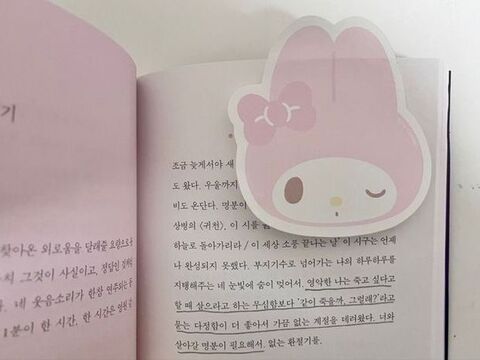 기
찾아온 외로움을 달래줄 요량으로
그것이 사실이고, 정답인 것처럼
네 웃음소리가 한창 연주되는
1분이 한 시간, 한 시간은 영원
조금 늦게서야 새
도 왔다. 우울까지
비도 온단다. 명분이
상병의 〈귀천〉, 이 시를
하늘로 돌아가리라 / 이 세상 소풍 끝나는 날' 이 시구는 언제
나 완성되지 못했다. 부지기수로 넘어가는 나의 하루하루를
지탱해주는 네 눈빛에 숨이 멎어서, 영악한 나는 죽고 싶다고
할 때 살으라고 하는 무심함보다 '같이 죽을까, 그럴래?'라고
묻는 다정함이 더 좋아서 가끔 없는 계절을 데려왔다. 너와
살아갈 명분이 필요해서. 없는 환절기를.